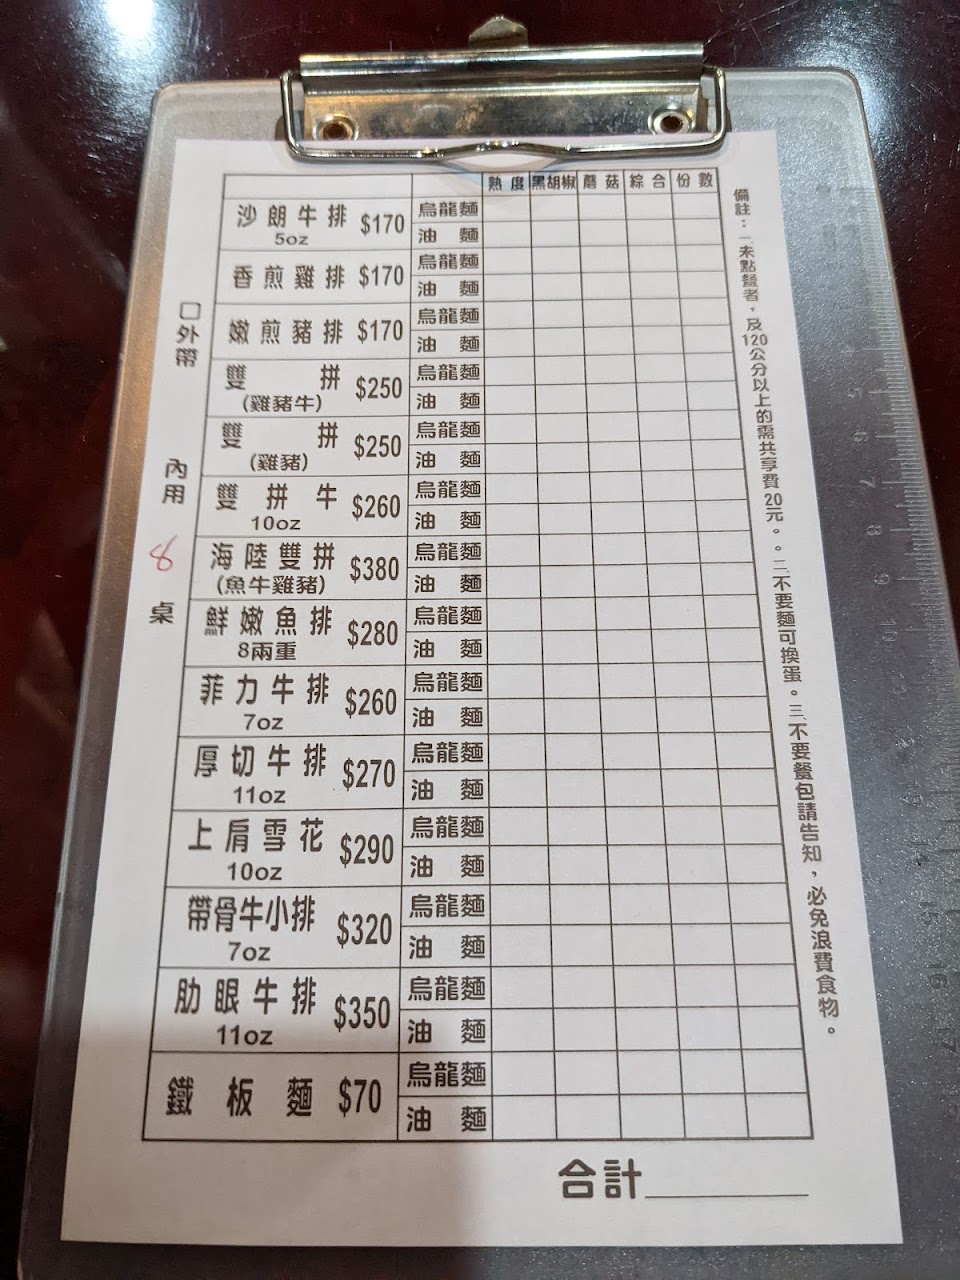 熟度 黑胡椒 蘑菇 綜合 份數
沙朗牛排 $170 烏龍麵
5oz 油麵
香煎雞排 $170 烏龍麵
油麵
嫩煎豬排 $170 烏龍麵
油麵
雙拼 $250 烏龍麵
(雞豬牛) 油麵
雙拼 $250 烏龍麵
(雞豬) 油麵
雙拼牛 $260 烏龍麵
10oz 油麵
海陸雙拼 $380 烏龍麵
(魚牛雞豬) 油麵
鮮嫩魚排 $280 烏龍麵
8兩重 油麵
菲力牛排 $260 烏龍麵
7oz 油麵
厚切牛排 $270 烏龍麵
11oz 油麵
上肩雪花 $290 烏龍麵
10oz 油麵
帶骨牛小排 $320 烏龍麵
7oz 油麵
肋眼牛排 $350 烏龍麵
11oz 油麵
鐵板麵 $70 烏龍麵
油麵
合計
□外帶
內用 8 桌
備註：一、未點餐者，及120公分以上的需共享費20元。。二、不要麵可換蛋。三、不要餐包請告知，必免浪費食物。